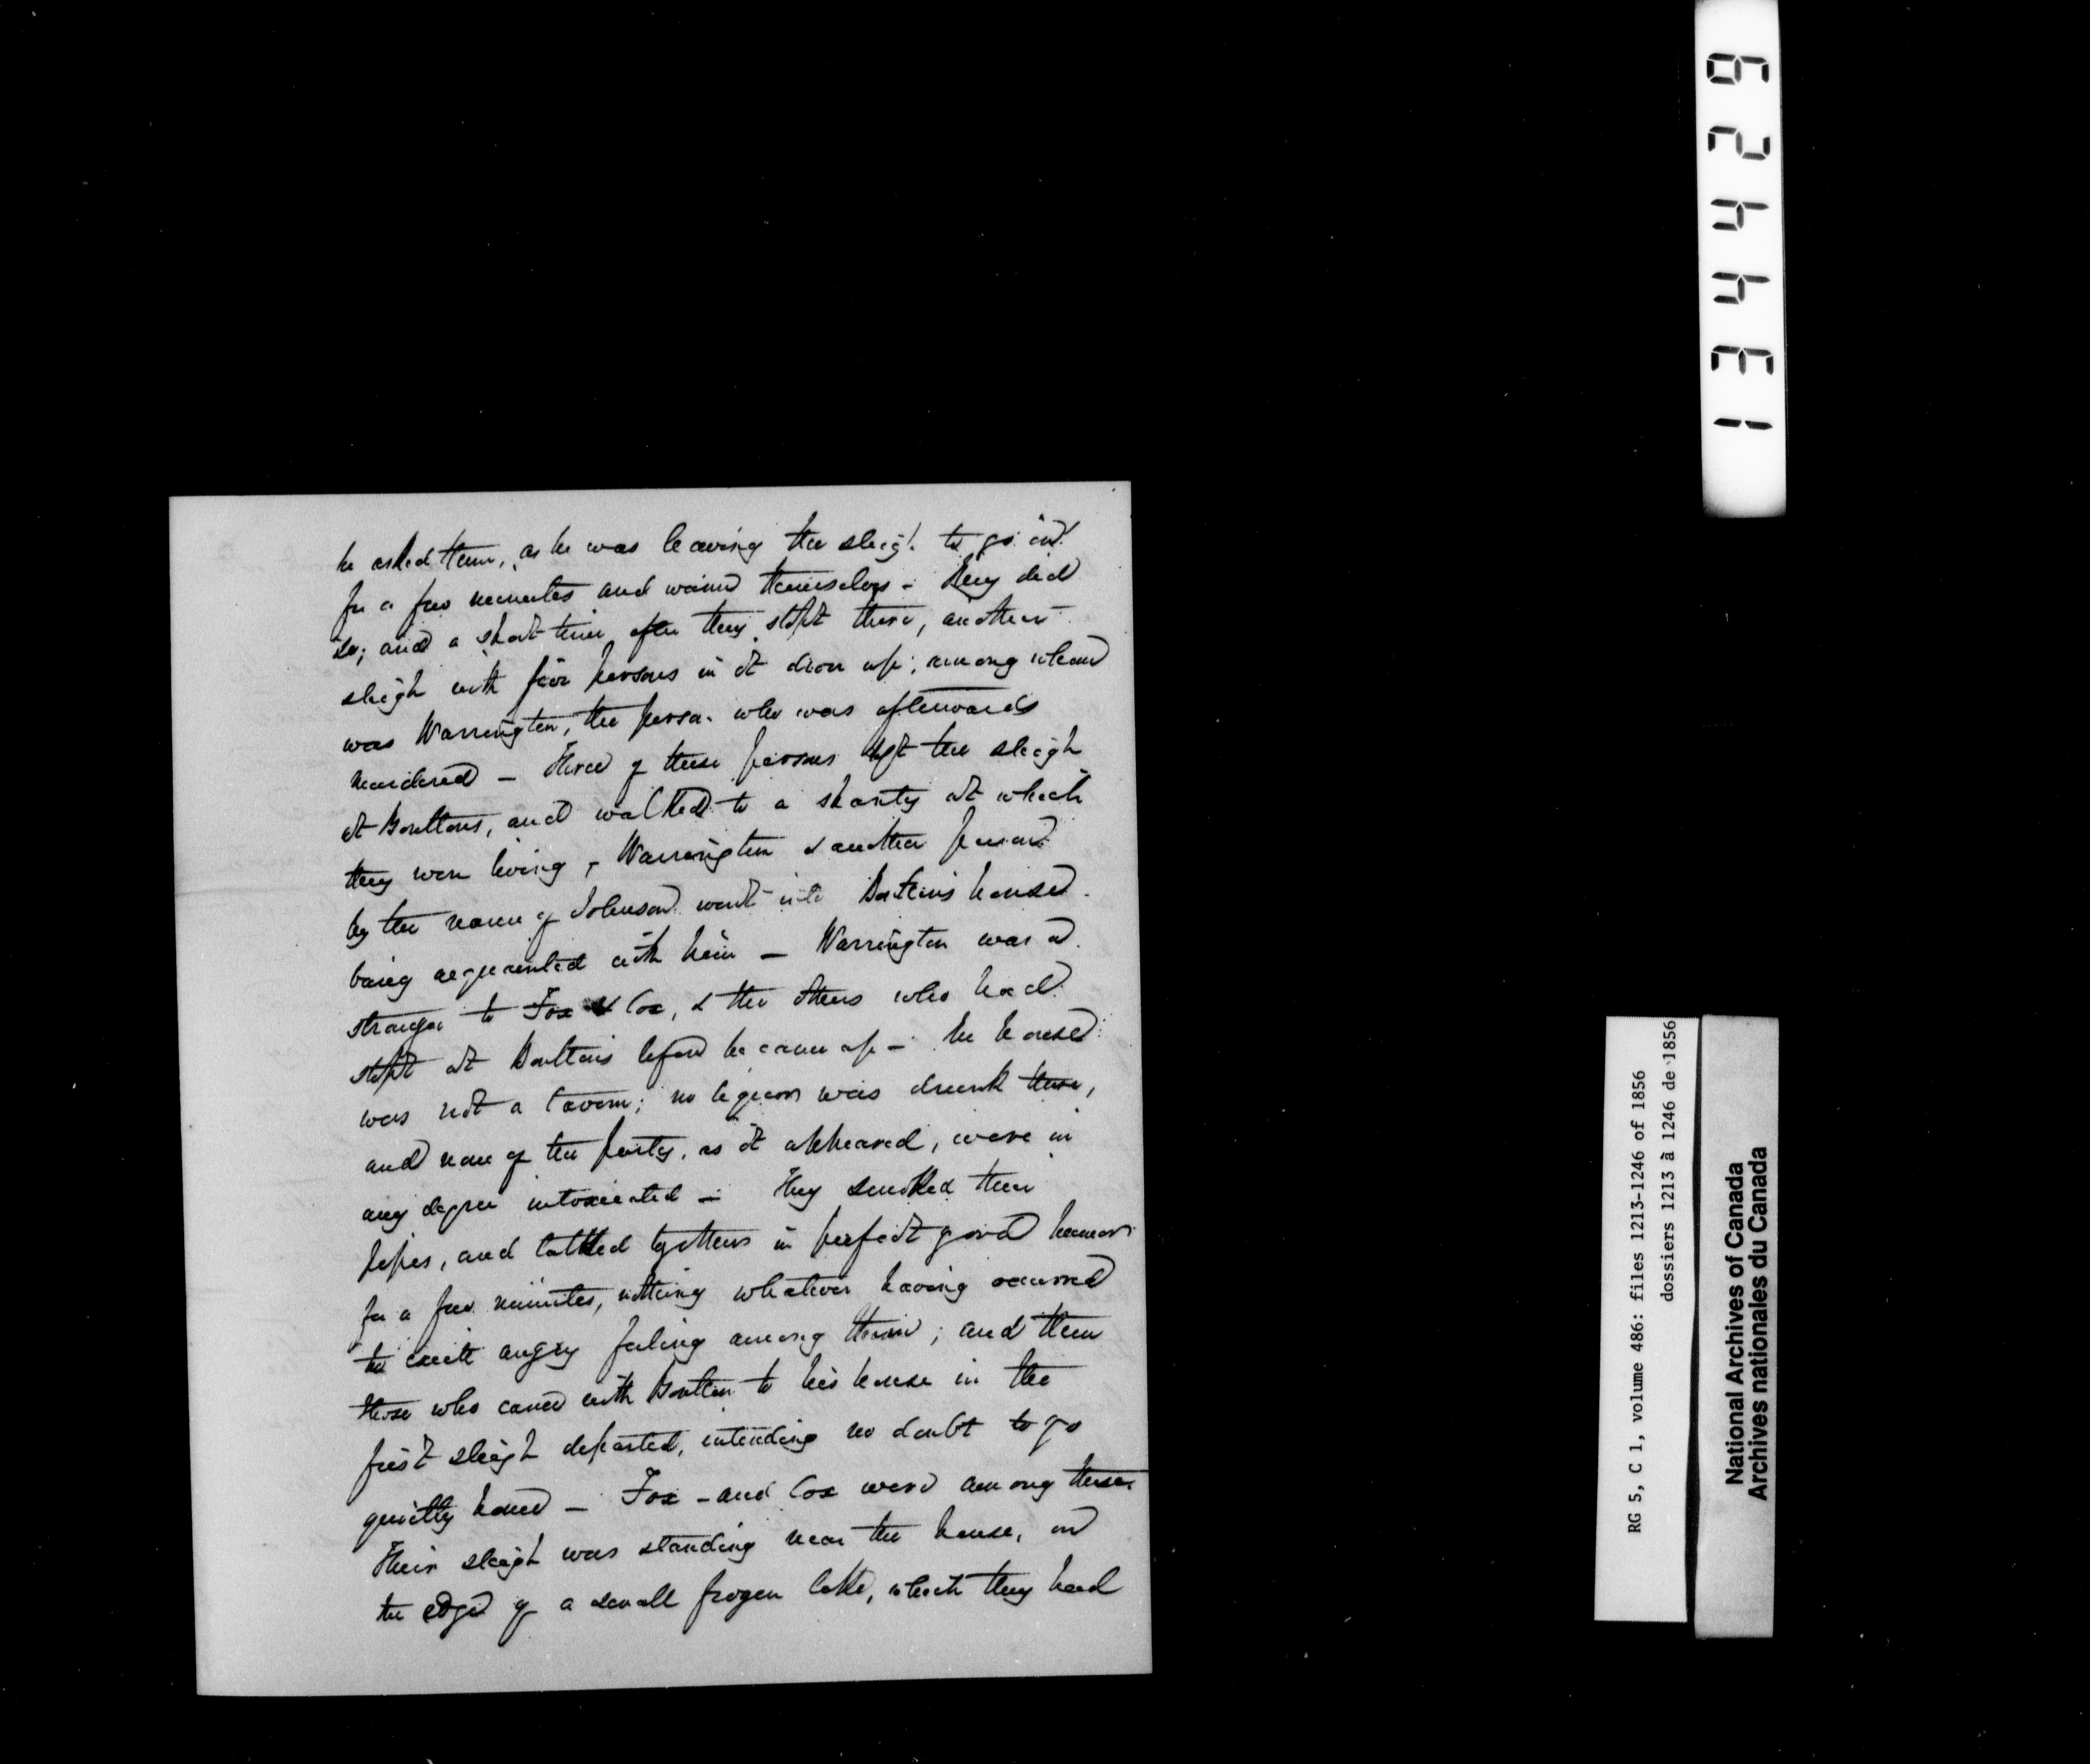 he asked them, as he was leaving the sleigh to go in
for a few minutes and warm themselves - They did
so; and a short time after they stopt there, another
sleigh with five persons in it drove up; among whom
was Warrington, the person who was afterwards
murdered - Three of these persons left the sleigh
at Boultons, and walked to a shanty at which
they were living, Warrington & another person
by the name of Johnson went into Boltons house
being acquainted with him - Warrington was a
stranger to Fox & Cox, & the others who had
stopt at Boultons before he came up - The house
was not a tavern; no liquor was drunk there,
and none of the party, as it appeared, were in
any degree intoxicated - They smoked their
pipes, and talked together in perfect good humor
for a few minutes, nothing whatever having occurred
to excite angry feeling among them; and then
those who came with Boulton to his house in the
first sleigh departed, intending no doubt to go
quietly home - Fox - and Cox were among these
Their sleigh was standing near the house, on
the edge of a small frozen lake, which they had
134429
RG 5, C 1, volume 486: files 1213-1246 of 1856
dossiers 1213 à 1246 de 1856
National Archives of Canada
Archives nationales du Canada